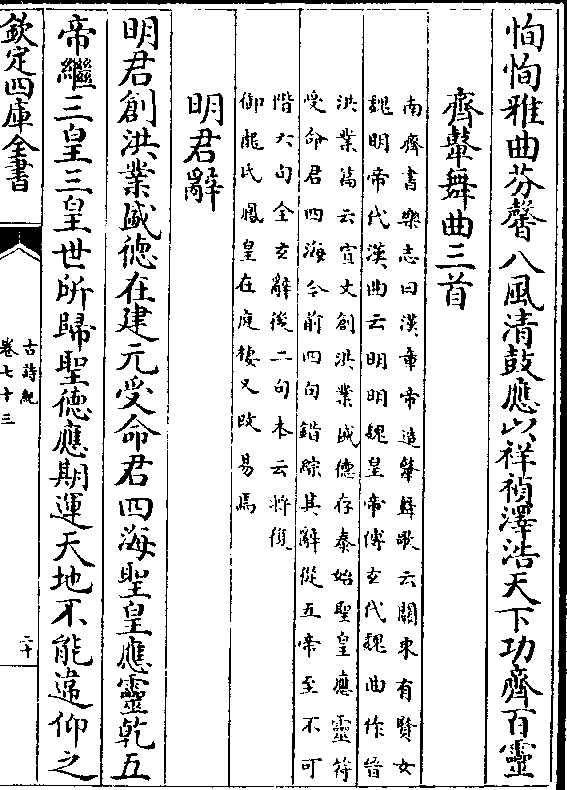 恂恂雅曲芬馨八風清鼓應以祥禎澤浩天下功齊百靈
齊鞞舞曲三首
南齊書樂志曰漢章帝造鞞舞歌云關東有賢女
魏明帝代漢曲云明明魏皇帝傅玄代魏曲作晉
洪業篇云宣文創洪業盛德存泰始聖皇應靈符
受命君四海今前四句錯綜其辭從五帝至不可
階六句全玄辭後二句本云將復
御龍氏鳳皇在庭棲又改易焉
明君辭
明君創洪業盛德在建元受命君四海聖皇應靈乾五
帝繼三皇三皇世所歸聖德應期運天地不能違仰之
欽定四庫全書
古詩紀
卷七十三
二十